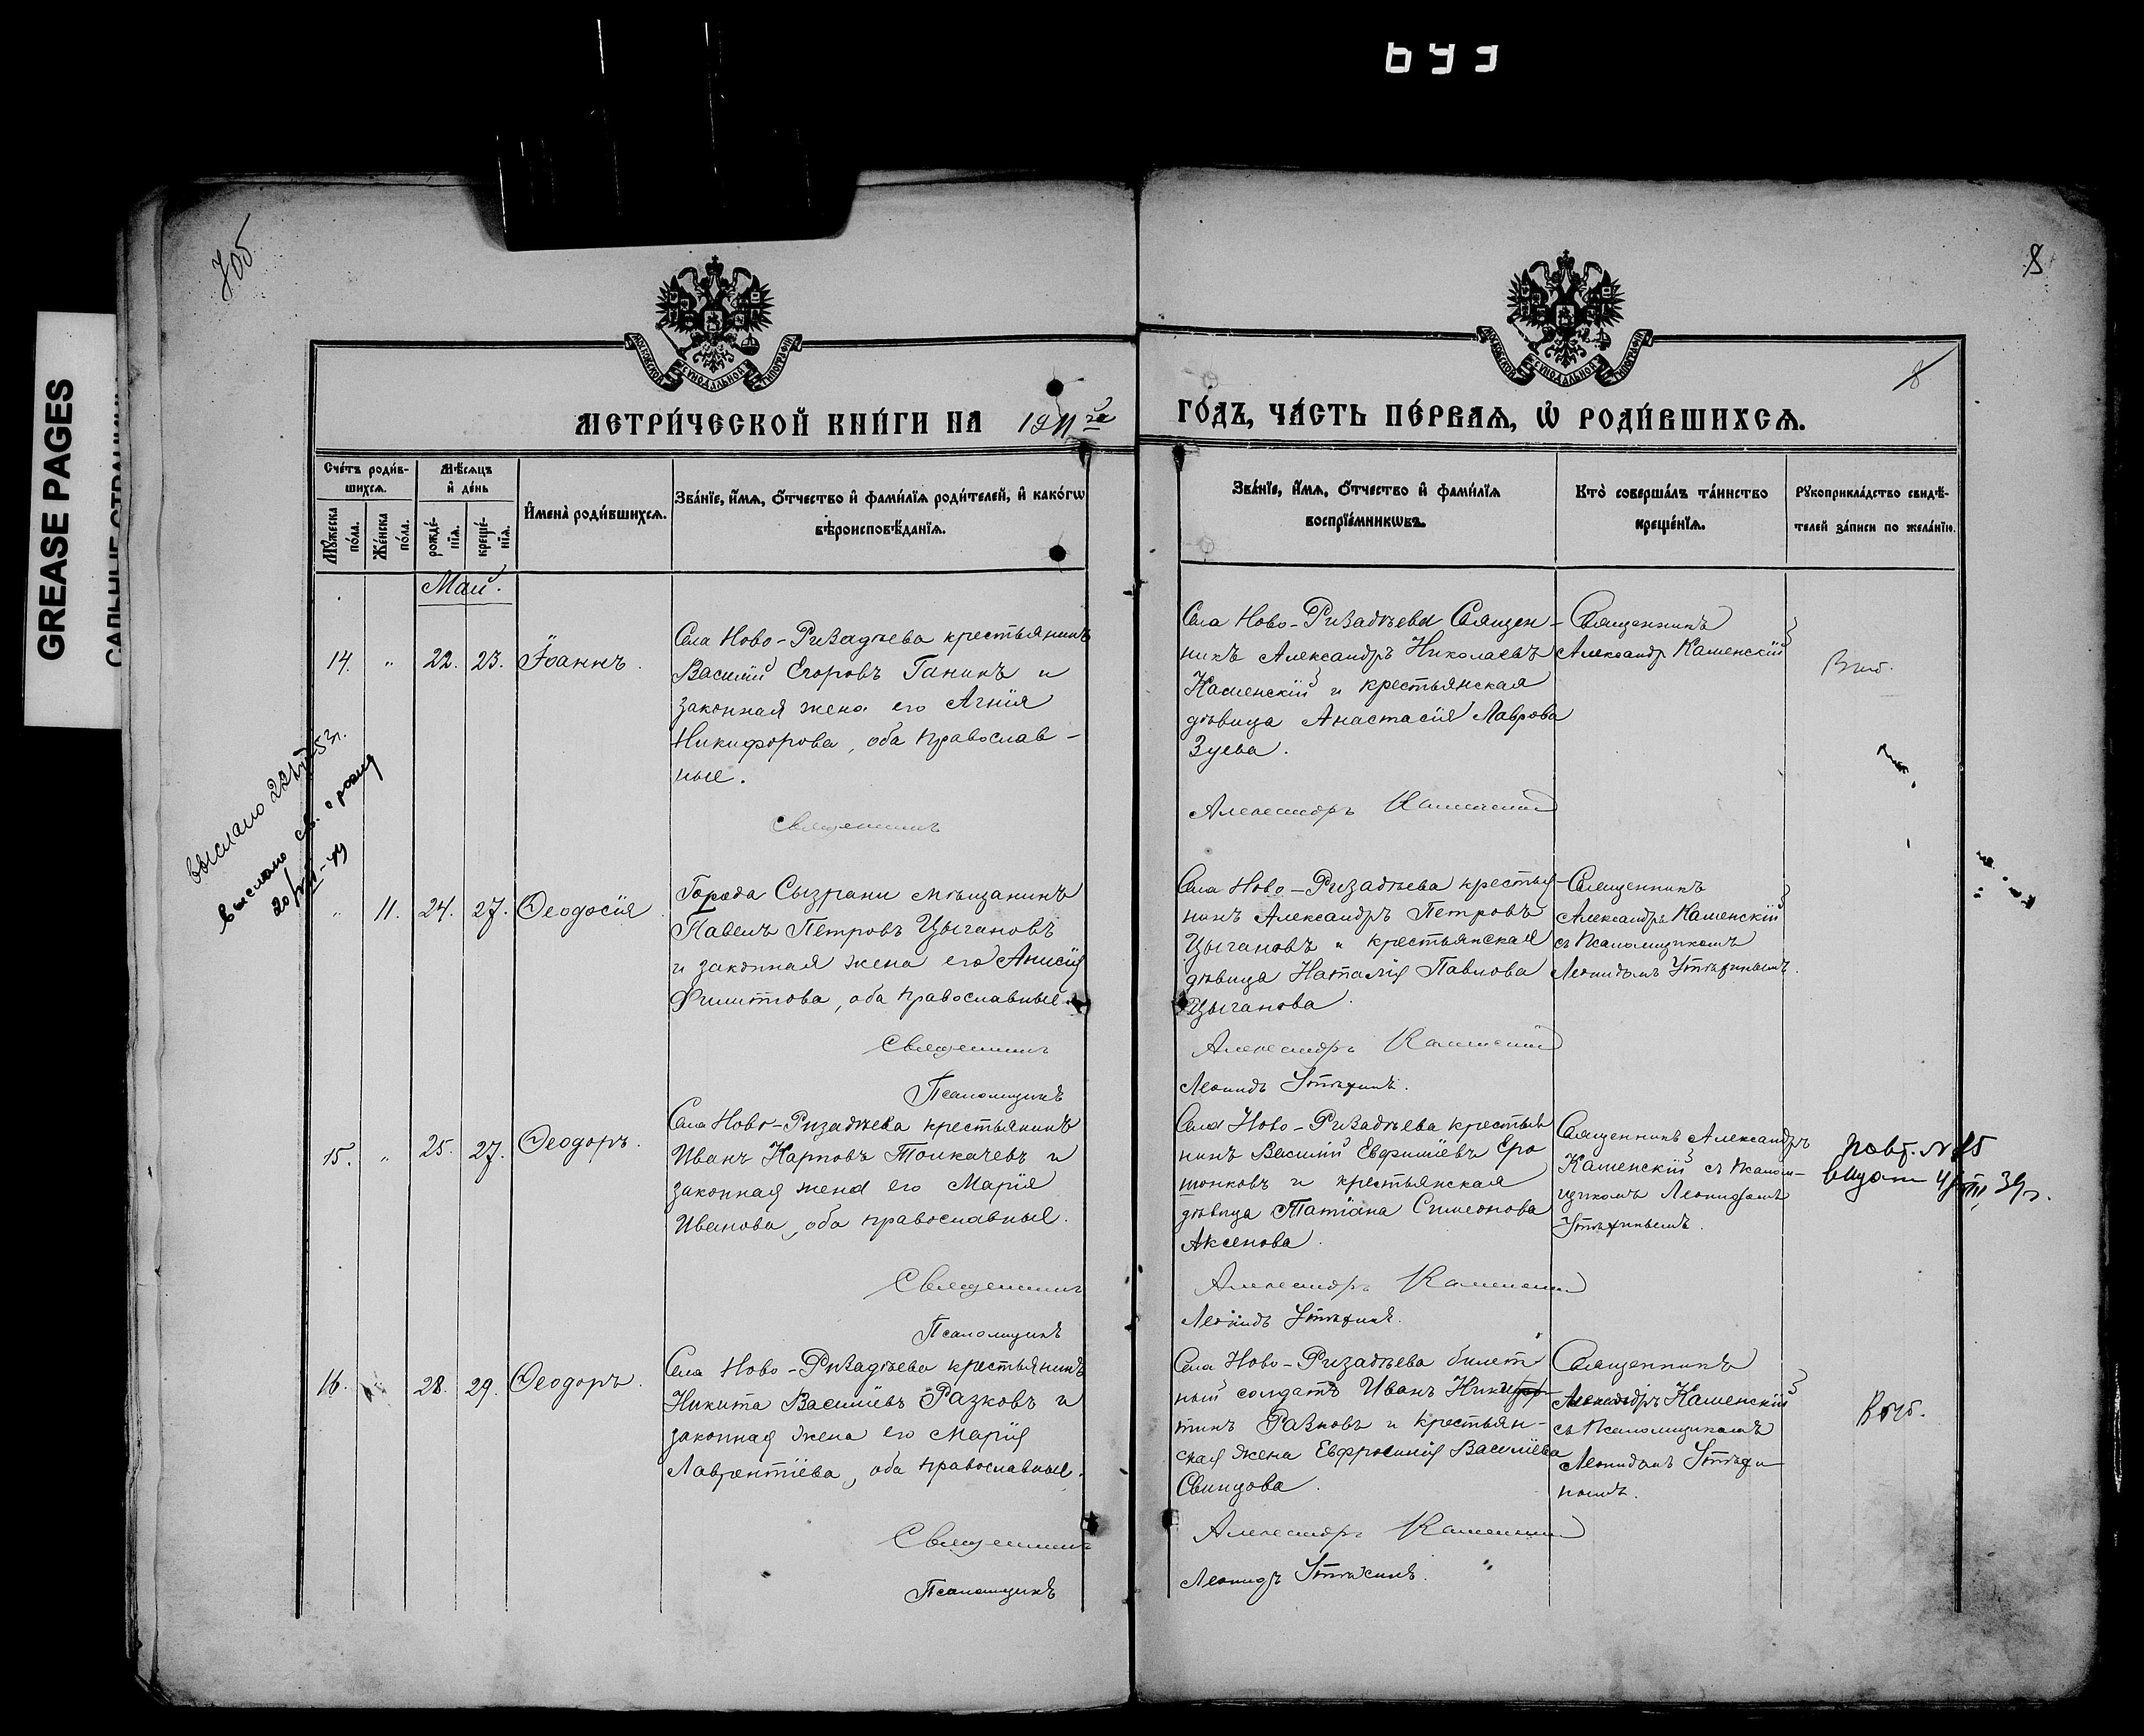 GREASE PAGES
7об
8
МОСКОВСКОЙ СѴНОДАЛЬНОЙ ТИПОГРАФІИ
МОСКОВСКОЙ СѴНОДАЛЬНОЙ ТИПОГРАФІИ
МЕТРИ́ЧЕСКОЙ КНИ́ГИ НА 1911 го́да
ГО́ДЪ, ЧА́СТЬ ПЕ́РВАѦ, Ѡ҆ РОДИ́ВШИХСѦ.
Сче́тъ роди́в-
шихсѧ.
Мꙋ́жеска по́ла.
Же́нска по́ла.
Мѣ́сѧцъ
и҆ де́нь
рожде́-
нїѧ.
креще́-
нїѧ.
И҆мена̀ роди́вшихсѧ.
Зва́нїе, и҆́мѧ, ѻ҆́тчество и҆ фами́лїѧ роди́телей, и҆ како́гѡ
вѣроисповѣ́данїѧ.
Зва́нїе, и҆́мѧ, ѻ҆́тчество и҆ фами́лїѧ
воспрїе́мникѡвъ.
Кто̀ соверша́лъ та́инство
креще́нїѧ.
Рꙋкоприкла́дство свидѣ́-
телей за́писи по жела́нїю.
Май.
14. " 22. 23. Іоаннъ.
Села Ново-Ризадѣева крестьянинъ
Василій Егоровъ Ганинъ и
законная жена его Агнія
Никифорова, оба православ-
ные.
Священникъ
Села Ново-Ризадѣева Священ-
никъ Александръ Николаевъ
Каменскій и крестьянская
дѣвица Анастасія Лаврова
Зуева.
Александръ Каменскій
Священникъ
Александр Каменскій
выслано
выслано св. о рожд
" 11. 24. 27. Ѳеодосія
Города Сызрани мѣщанинъ
Павелъ Петровъ Цыгановъ
и законная жена его Анисія
Филиппова, оба православные
Священникъ
Псаломщикъ
Села Ново-Ризадѣева крестья-
нинъ Александръ Петровъ
Цыгановъ и крестьянская
дѣвица Наталія Павлова
Цыганова.
Александръ Каменскій
Леонидъ Утѣхинъ.
Священникъ
Александръ Каменскій
съ Псаломщикомъ
Леонидомъ Утѣхинымъ.
15. " 25. 27. Ѳеодоръ.
Села Ново-Ризадѣева крестьянинъ
Иванъ Карповъ Толкачевъ и
законная жена его Марія
Иванова, оба православные.
Священникъ
Псаломщикъ
Села Ново-Ризадѣева крестья
нинъ Василій Евфиміевъ Еро
шонковъ и крестьянская
дѣвица Татіана Симеонова
Аксенова.
Александръ Каменскій
Леонидъ Утѣхинъ.
Священникъ Александръ
Каменскій съ Псалом-
щикомъ Леонидомъ
Утѣхинымъ.
16. " 28. 29. Ѳеодоръ.
Села Ново-Ризадѣева крестьянинъ
Никита Василіевъ Разковъ и
законная жена его Марія
Лаврентіева, оба православные.
Священникъ
Псаломщикъ
Села Ново-Ризадѣева билет
ный солдатъ Иванъ Ники
тинъ Разковъ и крестьян-
ская жена Евфросинія Василіева
Свинцова.
Александръ Каменскій
Леонидъ Утѣхинъ.
Священникъ
Александръ Каменскій
съ Псаломщикомъ
Леонидомъ Утѣхи
нымъ.